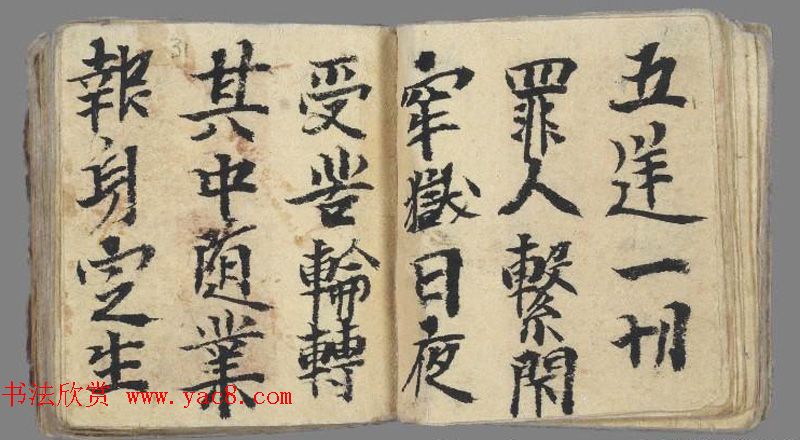 五逆一切
罪人繫閇
牢獄日夜
受苦輪轉
其中随業
報身定生
31
书法欣赏 www.yac8.com